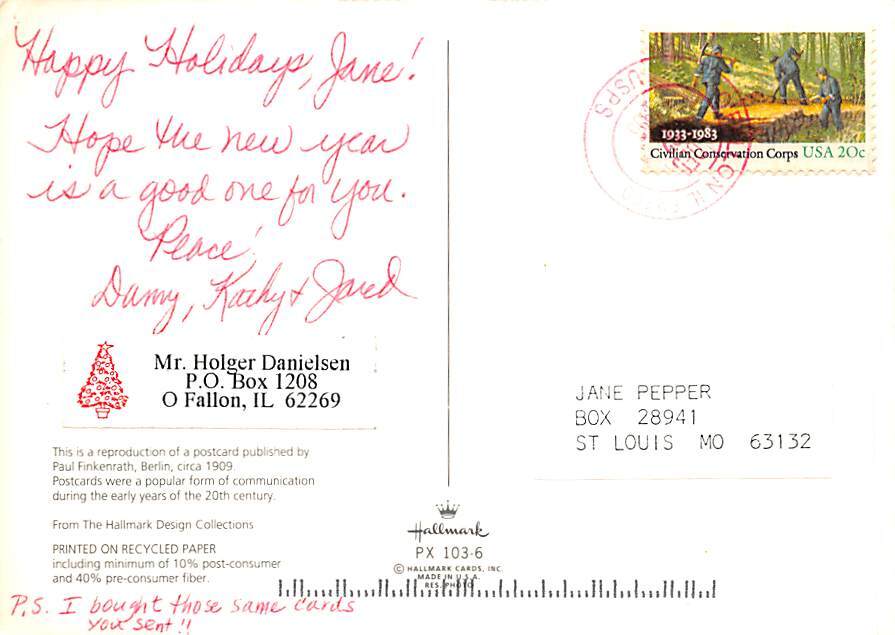 Happy Holidays, Jane!
Hope the new year
is a good one for you.
Peace!
Danny, Kathy & Jared
Mr. Holger Danielsen
P.O. Box 1208
O Fallon, IL 62269
This is a reproduction of a postcard published by
Paul Finkenrath, Berlin, circa 1909.
Postcards were a popular form of communication
during the early years of the 20th century.
From The Hallmark Design Collections
PRINTED ON RECYCLED PAPER
including minimum of 10% post-consumer
and 40% pre-consumer fiber.
P.S. I bought those same cards
you sent!!
Hallmark
PX 103-6
© HALLMARK CARDS, INC.
MADE IN U.S.A.
RES. PHOTO
USPS
1933-1983
Civilian Conservation Corps USA 20c
JANE PEPPER
BOX 28941
ST LOUIS MO 63132